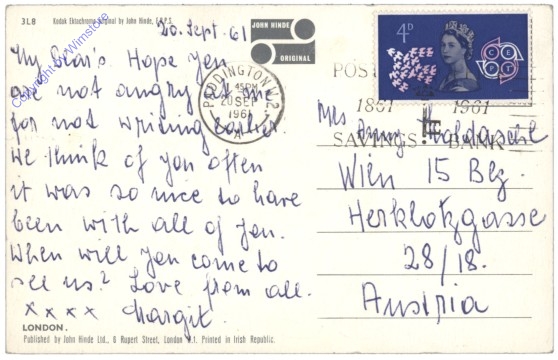 3L8
Kodak Ektachrome Original by John Hinde, F.R.P.S.
20. Sept. 61
JOHN HINDE
ORIGINAL
My Dear's Hope you
are not angry at me
for not writing earlier
We think of you often
it was so nice to have
been with all of you.
When will you come to
see us? Love from all.
x x x x Margit.
LONDON.
Published by John Hinde Ltd., 6 Rupert Street, London W.1. Printed in Irish Republic.
Copyright by Wimstore
4D
CEPT
PADDINGTON W.2
PM
20 SEP
1961
POST
1861 1961
SAVINGS BANK
Mrs
Wien 15 Bez.
Herklotzgasse
28/18.
Austria